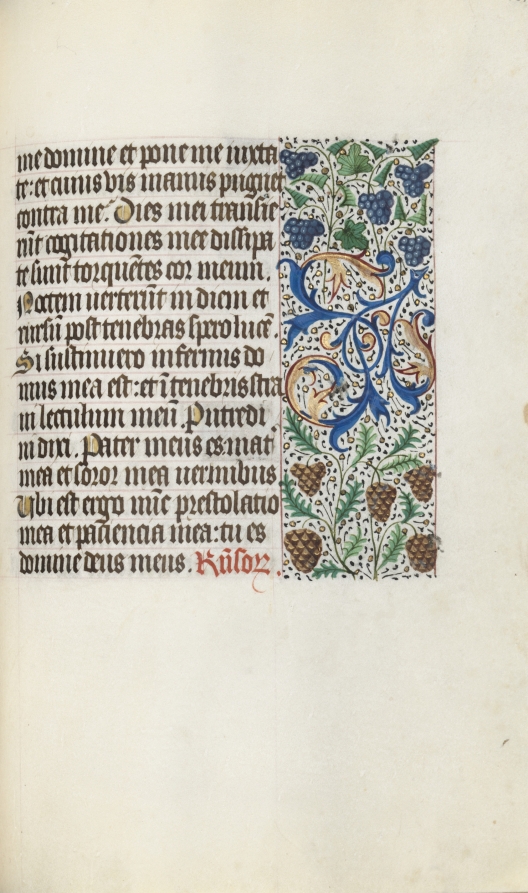 me domine et pone me iuxta
te: et cuiusvis manus pugnet
contra me. Dies mei transie
rūt cogitationes mee dissipa
te sunt torquētes cor meum.
Noctem verterūt in diem et
rursū post tenebras spero lucē.
Si sustinuero infernus do
mus mea est: et ī tenebris stra
vi lectulum meū. Putredi
ni dixi. Pater meus es: mat̄
mea et soror mea vermibus
Ubi est ergo nūc prestolatio
mea et paciencia mea: tu es
domine deus meus. Rūsorꝝ.